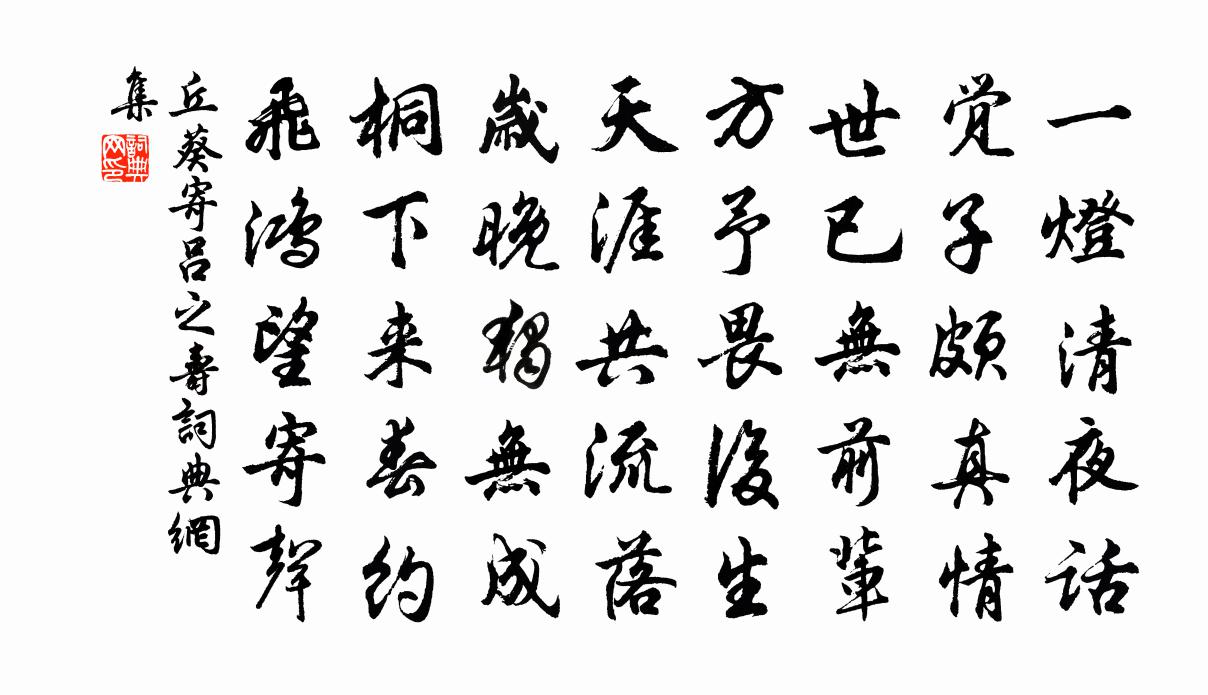 一燈清夜话
覚子頗真情
世已無前輩
方予畏後生
天涯共流落
歳晚獨無成
桐下来春约
飛鴻望寄聲
丘葵寄吕之壽詞典網
集
詞典
网印